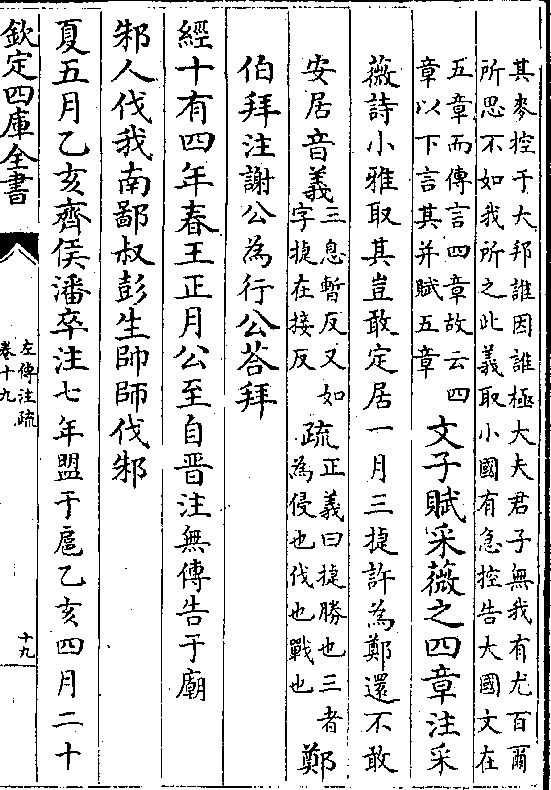 其麥控于大邦誰因誰極大夫君子無我有尤百爾
所思不如我所之此義取小國有急控告大國文在
五章而傳言四章故云四
章以下言其并賦五章
文子賦采薇之四章注采
薇詩小雅取其豈敢定居一月三捷許為鄭還不敢
安居音義
三息暫反又如
字捷在接反
疏
正義曰捷勝也三者
為侵也伐也戰也
鄭
伯拜注謝公為行公荅拜
經十有四年春王正月公至自晋注無傳告于廟
邾人伐我南鄙叔彭生帥師伐邾
夏五月乙亥齊侯潘卒注七年盟于扈乙亥四月二十
欽定四庫全書
左傳注疏
卷十九
十九